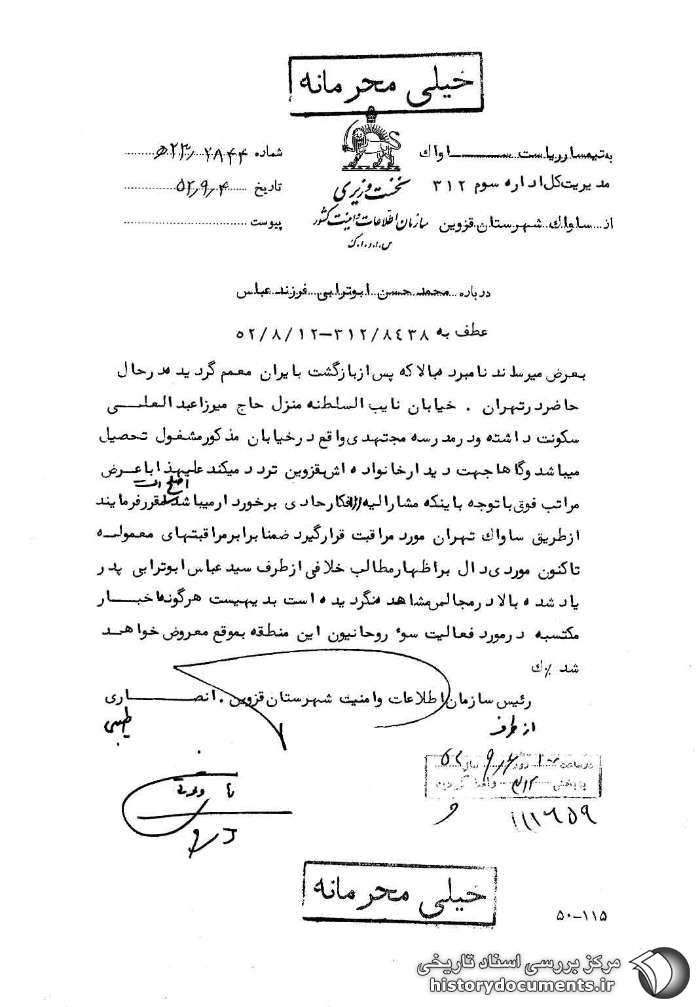 خیلی محرمانه
به تیمسار ریاست ساواک
شماره ۲۸۴۴/۵۲۳
مدیریت کل اداره سوم ۳۱۲
نخست وزیری
تاریخ ۵۲/۹/۴
از ساواک شهرستان قزوین
سازمان اطلاعات و امنیت کشور
پیوست
س.ا.و.ا.ک
درباره محمد حسن ابوترابی فرزند عباس
عطف به ۳۱۲/۸۴۳۸-۵۲/۸/۱۲
بعرض میرساند نامبرده بالا که پس از بازگشت بایران معمم گردیده در حال
حاضر در تهران . خیابان نایب السلطنه منزل حاج میرزا عبدالعلمی
سکونت داشته و در مدرسه مجتهدی واقع در خیابان مذکور مشغول تحصیل
میباشد و گاها جهت دیدار خانواده اش بقزوین تردد میکند علیهذا با عرض
مراتب فوق با توجه باینکه مشارالیه از افکار حادی برخوردار میباشد اصلح است مقرر فرمایند
از طریق ساواک تهران مورد مراقبت قرار گیرد ضمنا برابر مراقبتهای معموله
تاکنون موردی دال بر اظهار مطالب خلافی از طرف سید عباس ابوترابی پدر
یاد شده بالا در مجالس مشاهده نگردیده است بدیهیست هرگونه اخبار
مکتسبه در مورد فعالیت سوء روحانیون این منطقه بموقع معروض خواهد
شد %ک
رئیس سازمان اطلاعات و امنیت شهرستان قزوین . انصاری
از طرف
در ساعت روز ۹/۶ سال ۵۲
به بخش ۳۱۲ واصل گردید
۱۱۱۶۵۹
خیلی محرمانه
۵۰-۱۱۵
مرکز بررسی اسناد تاریخی
historydocuments.ir